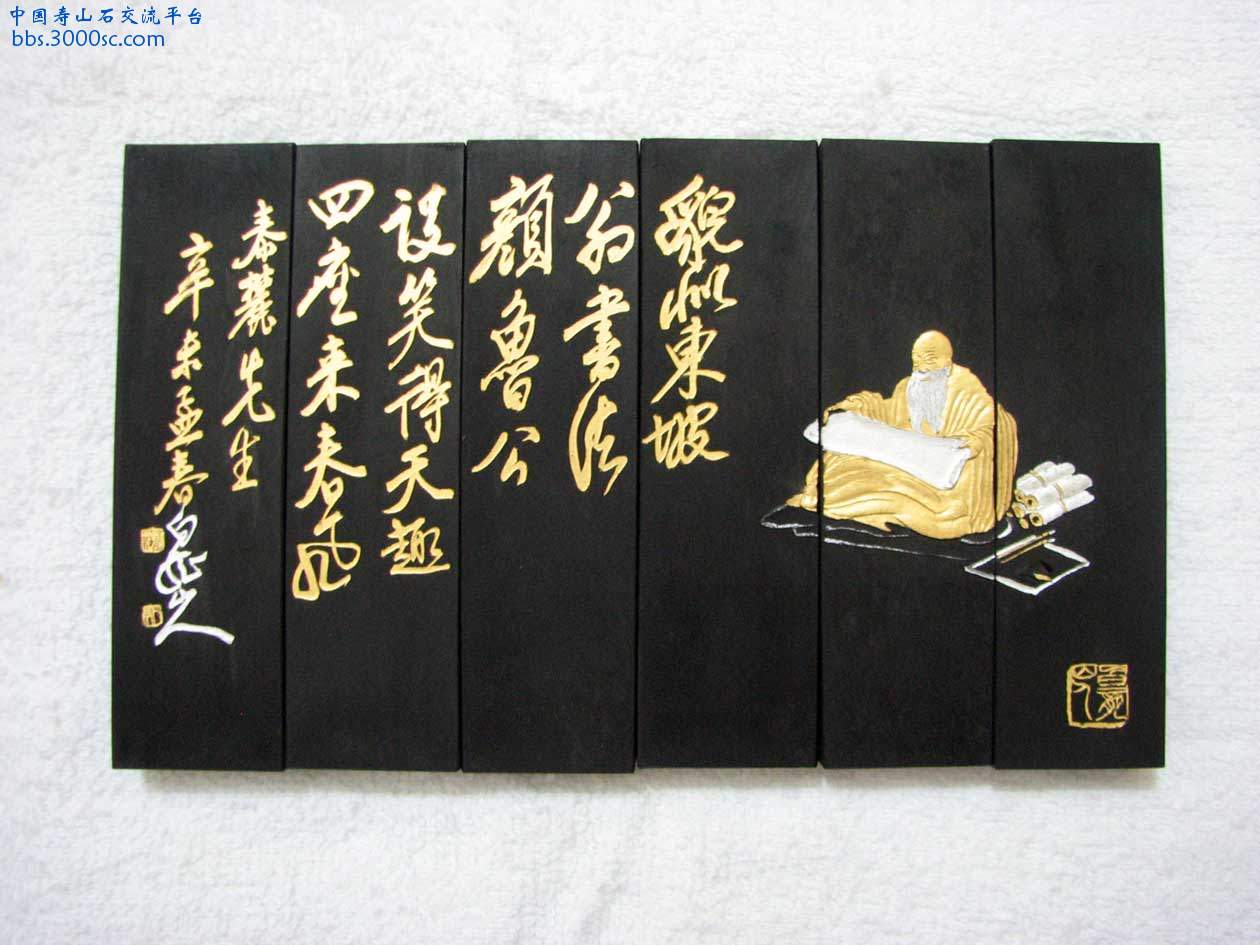 中国寿山石交流平台
bbs.3000sc.com
貌似東坡
翁書法
顔魯公
談笑得天趣
四座来春風
泰麓先生
辛未孟春